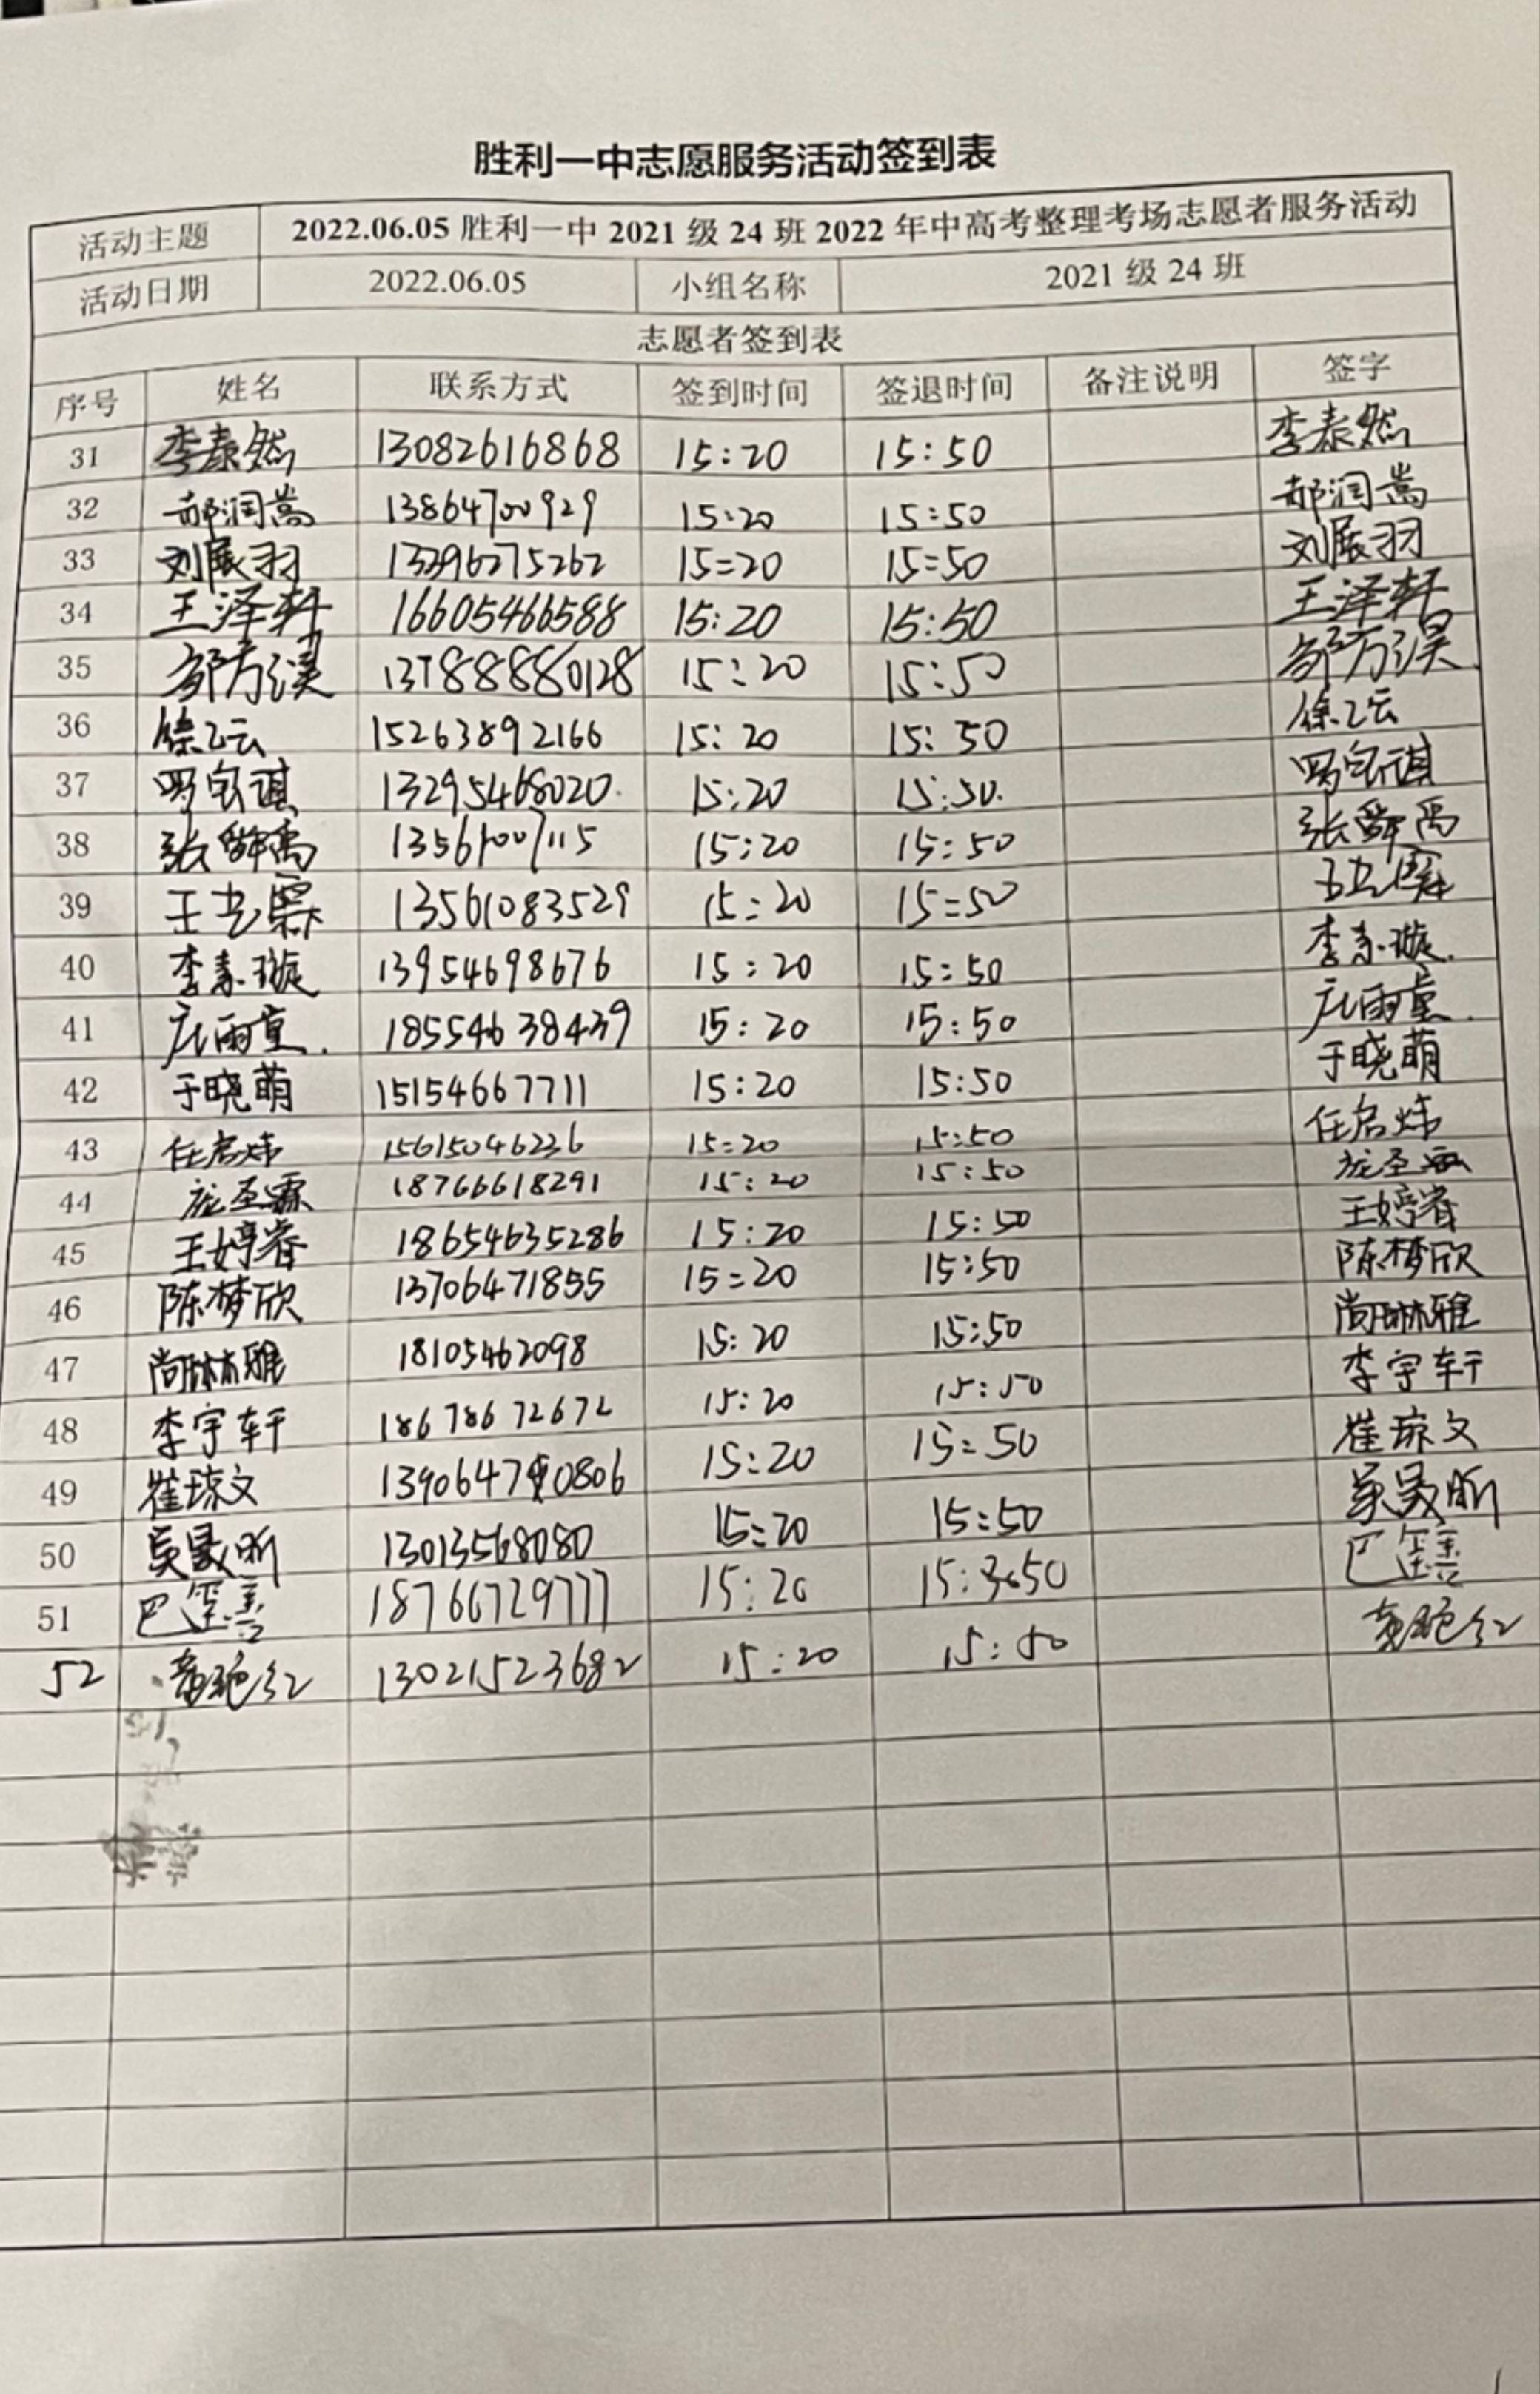 胜利一中志愿服务活动签到表
活动主题 2022.06.05 胜利一中 2021 级 24 班 2022 年中高考整理考场志愿者服务活动
活动日期 2022.06.05 小组名称 2021 级 24 班
志愿者签到表
序号 姓名 联系方式 签到时间 签退时间 备注说明 签字
31 李泰然 13082616868 15:20 15:50 李泰然
32 郝润嵩 13864700929 15:20 15:50 郝润嵩
33 刘展羽 13396275262 15:20 15:50 刘展羽
34 王泽轩 16605466588 15:20 15:50 王泽轩
35 邹方淏 15:20 15:50 邹方淏
36 徐乙云 15263892166 15:20 15:50 徐乙云
37 13295468020 15:20 15:50
38 张舜禹 13561007115 15:20 15:50 张舜禹
39 13561083529 15:20 15:50
40 李素璇 13954698676 15:20 15:50 李素璇
41 18554638439 15:20 15:50
42 于晓萌 15154667711 15:20 15:50 于晓萌
43 任启炜 15615046236 15:20 15:50 任启炜
44 庞圣霖 18766618291 15:20 15:50
45 王婷睿 18654635286 15:20 15:50 王婷睿
46 陈梦欣 13706471855 15:20 15:50 陈梦欣
47 尚琳雅 18105462098 15:20 15:50 尚琳雅
48 李宇轩 18678672672 15:20 15:50 李宇轩
49 崔琼文 15:20 15:50 崔琼文
50 吴晟昕 13013568080 15:20 15:50 吴晟昕
51 18766729777 15:20
52 13021523682 15:20 15:50